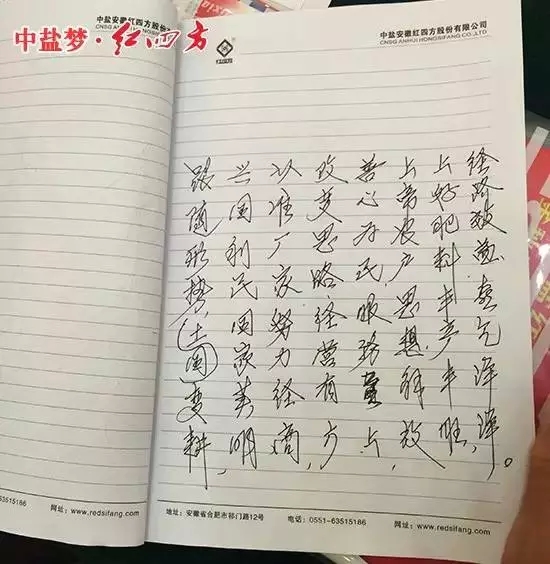 中盐梦·红四方
中盐安徽红四方股份有限公司
CNSG ANHUI HONGSIFANG CO.,LTD
红四方
跟随形势(土国)变耕,
兴国利民国家美明,
以准厂家努力经商,
改变思路经营有方,
善心为民服务点,
上帝农户思想,
上好肥料丰产丰旺,
经路致富喜气洋洋。
63515186 网址:www.redsifang.com
地址:安徽省合肥市祁门路12号 电话:0551-63515186 网址:www.redsifang.com